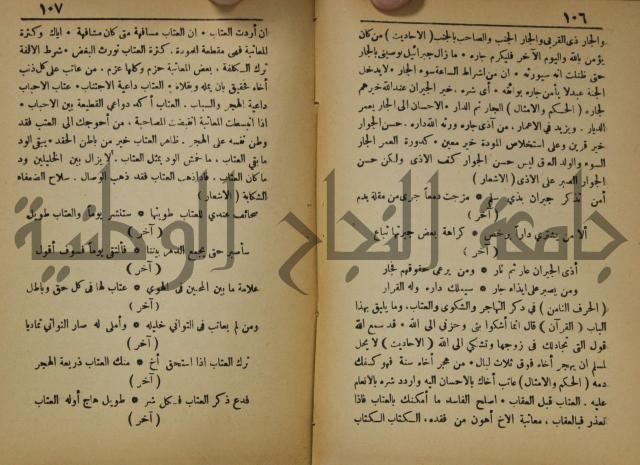 ١٠٦
والجار ذى القربى والجار الجنب والصاحب بالجنب ( الاحاديث ) من كان
يؤمن بالله واليوم الآخر فليكرم جاره * ما زال جبرائيل يوصينى بالجار
حتى ظننت انه سيورثه * ان من اشراط الساعة سوء الجار * لا يدخل
الجنة عبد لا يأمن جاره بوائقه * أى شره . خير الجيران عند الله خيرهم
لجاره ( الحكم والامثال ) الجار ثم الدار * الاحسان الى الجار يعمر
الديار . ويزيد في الاعمار . من آذى جاره ورثه الله داره . حسن الجوار
خير قرين وعلى استخلاص المودة خير معين * كدورة العمر الجار
السوء والولد العق ليس حسن الجوار كف الاذى ولكن حسن
الجوار الصبر على الاذى ( الاشعار )
أمن تذكر جيران بذى سلم * مزجت دمعاً جرى من مقلة بدم
( آخر )
ألا من يشترى داراً برخص * كراهة بعض جيرتها تباع
( آخر )
أذى الجيران عار ثم نار * ومن يرعى حقوقهم فجار
ومن يصبر على ايذاء جار * سيملك داره وله القرار
( الحرف الثامن ) في ذكر التهاجر والشكوى والعتاب . وما يليق بهذا
الباب ( القرآن ) قال انما أشكوا بثى وحزنى الى الله * قد سمع الله
قول التى تجادلك فى زوجها وتشتكى الى الله ( الاحاديث ) لا يحل
لمسلم ان يهجر أخاه فوق ثلاث ليال * من هجر أخاه سنة فهو كسفك
دمه ( الحكم والامثال ) عاتب أخاك بالاحسان اليه واردد شره بالانعام
عليه . العتاب قبل العقاب * اصلح الفاسد ما أمكنك بالعتاب فاذا
تعذر فبالعقاب . معاتبة الاخ أهون من فقده . الكتاب الكتاب
١٠٧
ان أردت العتاب * ان العتاب مسافهة متى كان مشافهة * اياك وكثرة
المعاتبة فهى مقطعة المودة . كثرة العتاب تورث البغض * شرط الالفة
ترك الكلفة . بعض المعاتبة حزم وكلها عزم . من عاتب على كل ذنب
أخاه فحقيق بان يمله ويقلاه * العتاب داعية الاجتناب * عتاب الاحباب
داعية الهجر والسباب . العتاب أكد دواعى القطيعة بين الاحباب *
اذا انبسطت المعاتبة انقبضت المصاحبة . من أحوجك الى العتب فقد
وطن نفسه على الهجر . ظاهر العتاب خير من باطن الحقد * يبقى الود
ما بقى العتاب . ما خمش الود بمثل العتاب . لا يزال بين الخليلين ود
ما كان العتاب . فاذا ذهب العتاب فقد ذهب الوصال . سلاح الضعفاء
الشكاية ( الاشعار )
صحائف عندى للعتاب طويتها * ستنشر يوماً والعتاب طويل
( آخر )
سأصبر حتى يجمع الدهر بيننا * فالنتقى يوماً فسوف أقول
( آخر )
علامة ما بين المحبين فى الهوى * عتاب لها فى كل حق وباطل
( آخر )
ومن لم يعاتب فى التوانى خليله * وأملى له صار التوانى تماديا
( آخر )
ترك العتاب اذا استحق أخ * منك العتاب ذريعة الهجر
( آخر )
فدع ذكر العتاب فكل شر * طويل هاج أوله العتاب
( آخر )
جامعة النجاح الوطنية